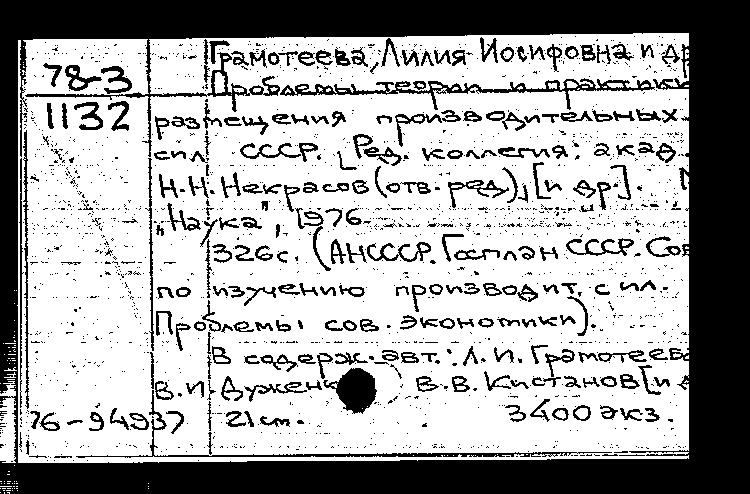 Грамотеева, Лилия Иосифовна и др
78-3
Проблемы теории и практики
1132
размещения производительных
сил СССР. [Ред. коллегия: акад.
Н.Н. Некрасов (отв. ред), [и др.].
"Наука", 1976-
326с. (АН СССР. Госплан СССР. Сов
по изучению производит. сил.
Проблемы сов. экономики).
В содерж. авт.: Л. И. Грамотеева
В. И. В. В. Кистанов [и д
76-94937 21 см. 3400 экз.